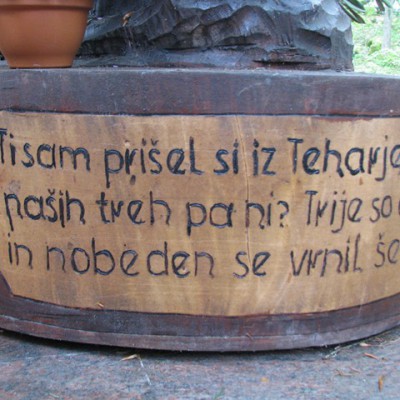 Ti sam prišel si iz Teharje
naših treh pa ni? Trije so
in nobeden se vrnil še